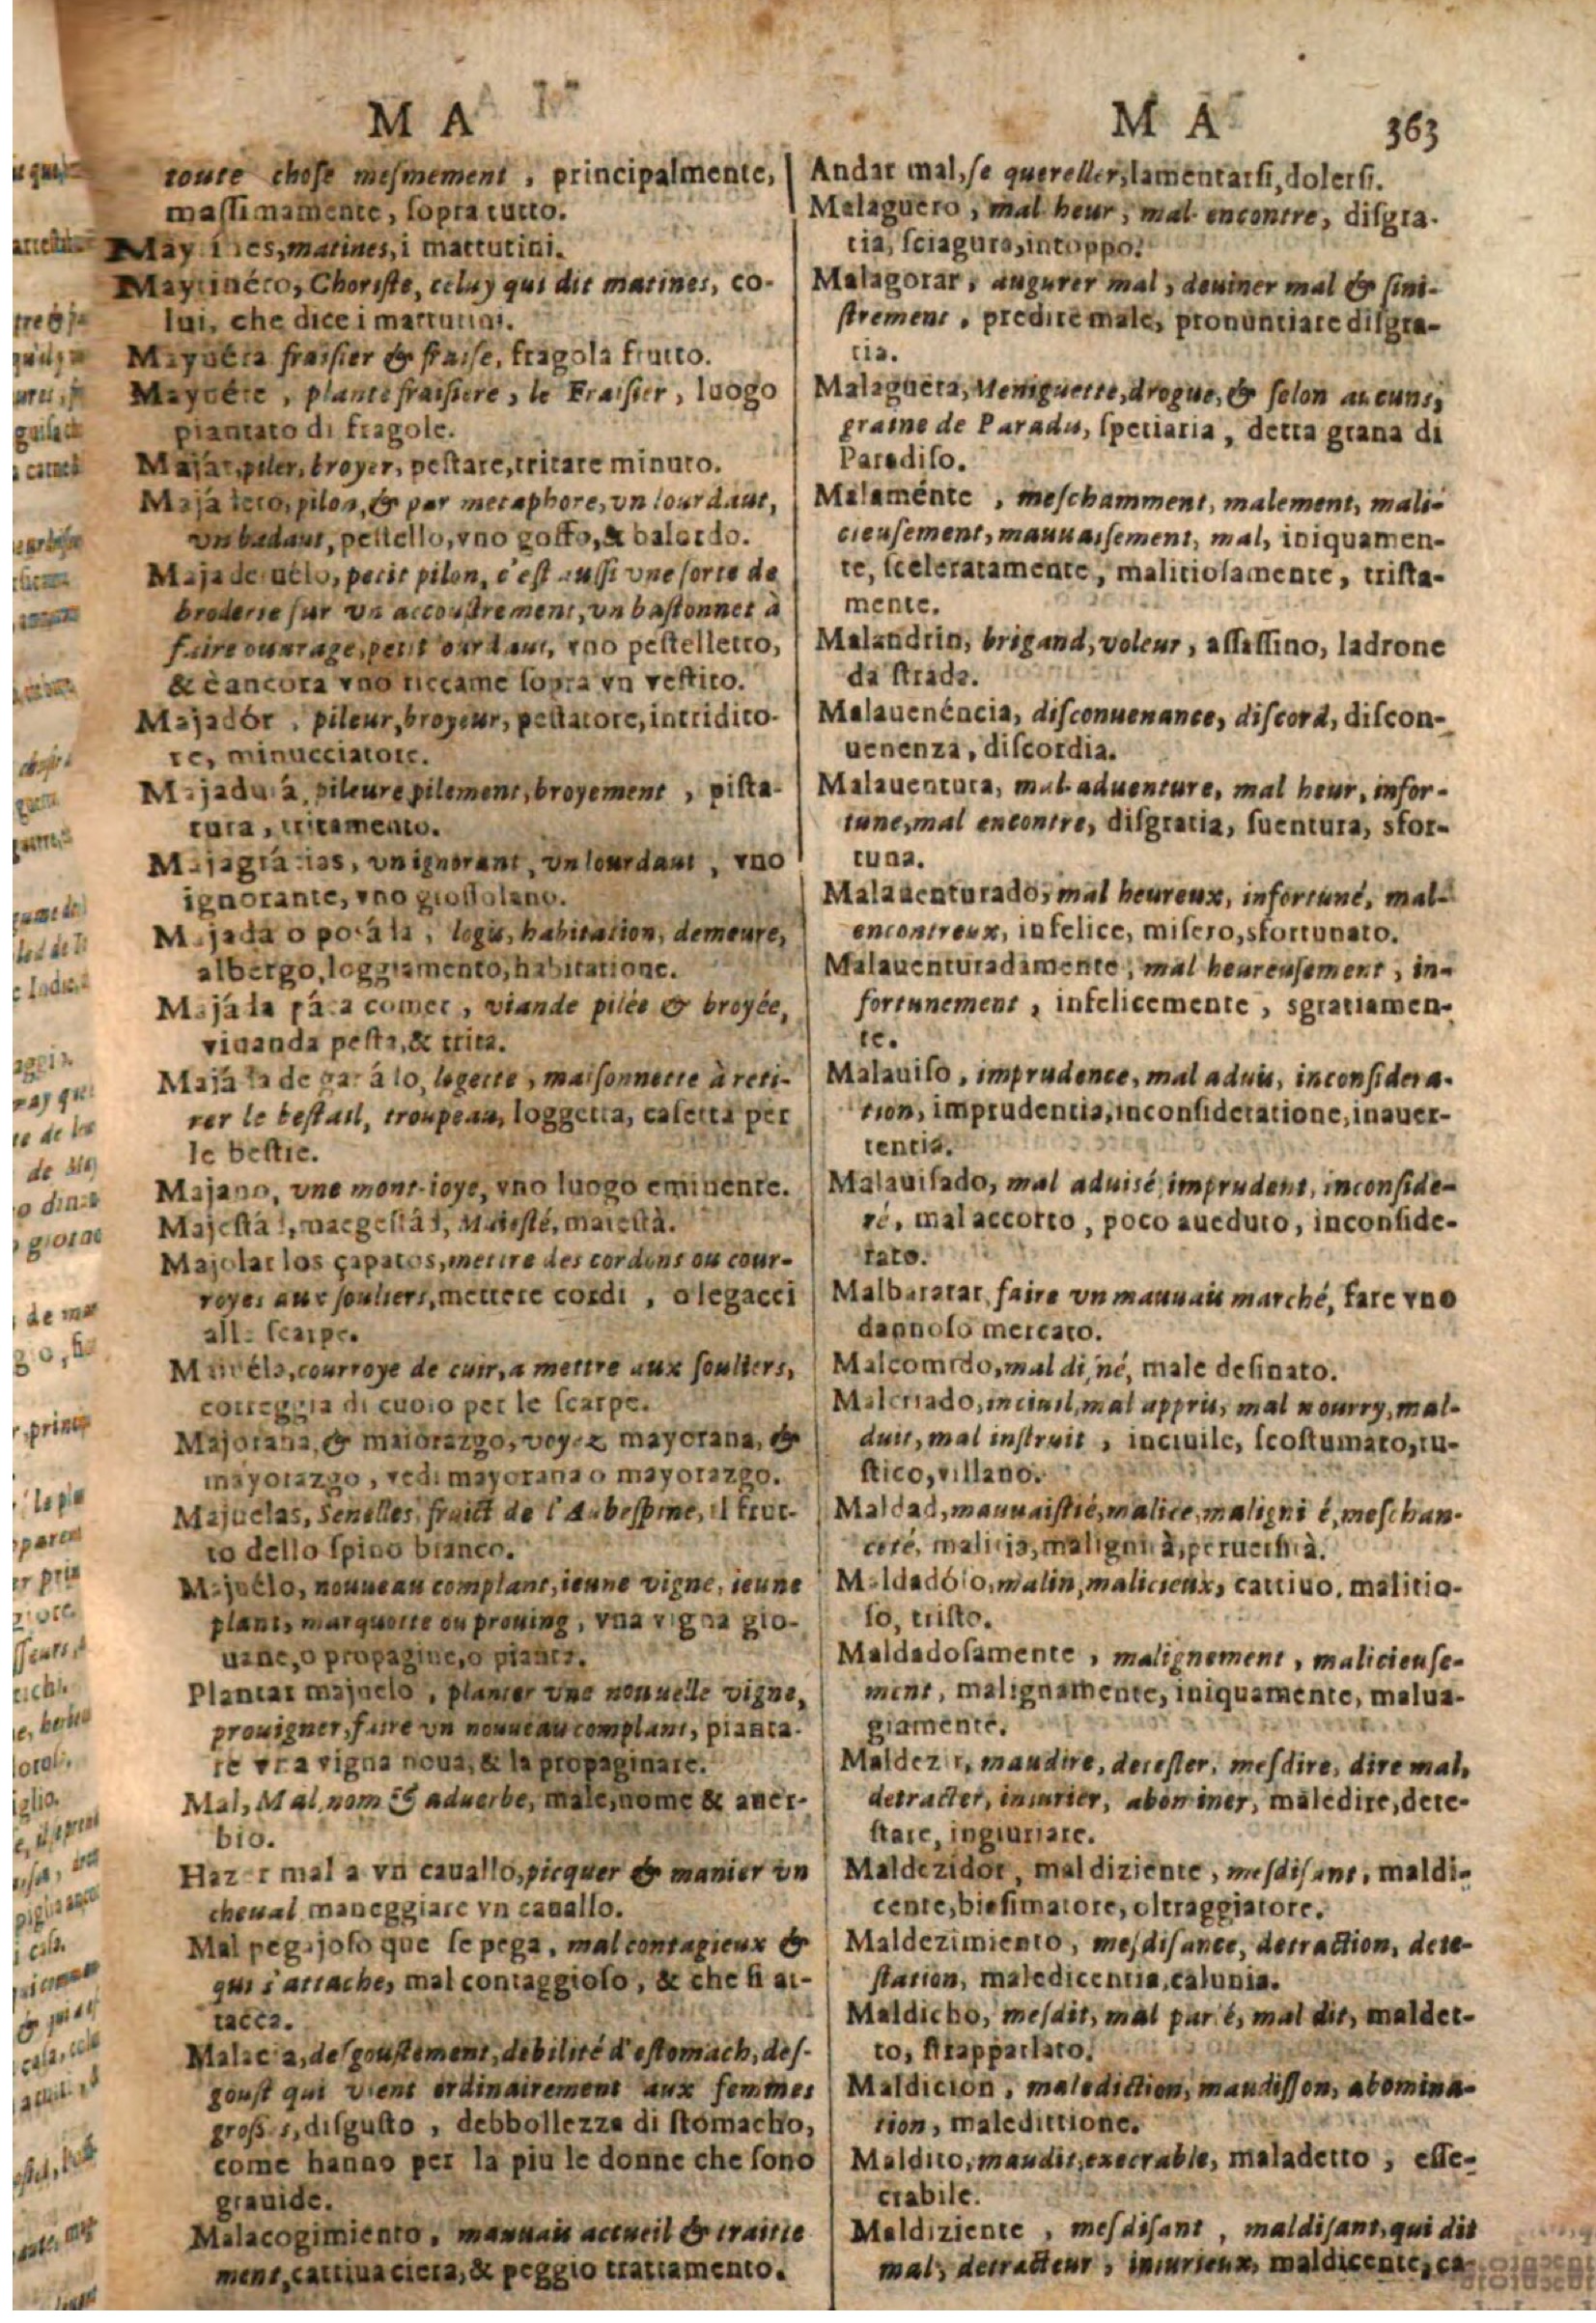 M A
toute chose mesmement, principalmente,
massimamente, sopra tutto.
May ines, matines, i mattutini.
Maytinéro, Choriste, celuy qui dit matines, co-
lui, che dice i mattutini.
Mayuéta fraisier & fraise, fragola frutto.
Mayuéte, plante fraisiere, le Fraisier, luogo
piantato di fragole.
Majar, piler, broyer, pestare, tritare minuto.
Majá lero, pilon, & par metaphore, vn lourdaut,
vn badaut, pestello, vno goffo, & balordo.
Majaderuélo, petit pilon, c'est aussi vne sorte de
broderie sur vn accoustrement, vn bastonnet à
faire ouurage, petit lourdaut, vno pestelletto,
& è ancora vno riccame sopra vn vestito.
Majadór, pileur, broyeur, pestatore, intridito-
re, minucciatore.
Majadurá, pileure pilement, broyement, pista-
tura, tritamento.
Majagrácias, vn ignorant, vn lourdaut, vno
ignorante, vno grossolano.
Majada o posáda, logis, habitation, demeure,
albergo, loggiamento, habitatione.
Majáda pára comer, viande pilée & broyée,
viuanda pesta, & trita.
Majáda de ganálo, logette, maisonnette à reti-
rer le bestail, troupeau, loggetta, casetta per
le bestie.
Majano, vne mont-ioye, vno luogo eminente.
Majestád, maegestád, Maiesté, maiestà.
Majolar los çapatos, mettre des cordons ou cour-
royes aux souliers, mettere cordi, o legacci
alle scarpe.
courroye de cuir, a mettre aux souliers,
correggia di cuoio per le scarpe.
Majorana, & maiorazgo, voyez mayorana, &
mayorazgo, vedi mayorana o mayorazgo.
Majuelas, Senelles, fruict de l'Aubespine, il frut-
to dello spino bianco.
Majuélo, nouueau complant, ieune vigne, ieune
plant, marquotte ou prouing, vna vigna gio-
uane, o propagine, o pianta.
Plantar majuelo, planter vne nouuelle vigne,
prouigner, faire vn nouueau complant, pianta-
re vna vigna noua, & la propaginare.
Mal, Mal, nom & aduerbe, male, nome & auer-
bio.
Hazer mal a vn cauallo, picquer & manier vn
cheual maneggiare vn cauallo.
Mal pegajoso que se pega, mal contagieux &
qui s'attache, mal contaggioso, & che si at-
tacca.
Malacia, desgoustement, debilité d'estomach, des-
goust qui vient ordinairement aux femmes
grosses, disgusto, debbollezza di stomacho,
come hanno per la piu le donne che sono
grauide.
Malacogimiento, mauuais accueil & traitte
ment, cattiua ciera, & peggio trattamento.
M A 363
Andar mal, se quereller, lamentarsi, dolersi.
Malaguero, mal heur, mal encontre, disgra-
tia, sciagura, intoppo.
Malagorar, augurer mal, deuiner mal & sini-
strement, predire male, pronuntiare disgra-
tia.
Malagueta, Meniguette, drogue, & selon aucuns,
graine de Paradis, spetiaria, detta grana di
Paradiso.
Malaménte, meschamment, malement, mali-
cieusement, mauuaisement, mal, iniquamen-
te, sceleratamente, malitiosamente, trista-
mente.
Malandrin, brigand, voleur, assassino, ladrone
da strada.
Malauenéncia, disconuenance, discord, discon-
uenenza, discordia.
Malauentura, mal-aduenture, mal heur, infor-
tune, mal encontre, disgratia, suentura, sfor-
tuna.
Malauenturado, mal heureux, infortuné, mal-
encontreux, infelice, misero, sfortunato.
Malauenturadamente, mal heureusement, in-
fortunement, infelicemente, sgratiamen-
te.
Malauiso, imprudence, mal aduis, inconsidera-
tion, imprudentia, inconsideratione, inauer-
tentia.
Malauisado, mal aduisé, imprudent, inconside-
ré, mal accorto, poco aueduto, inconside-
rato.
Malbaratar, faire vn mauuais marché, fare vno
dannoso mercato.
Malcomido, mal disné, male desinato.
Malcriado, inciuil, mal appris, mal nourry, mal-
duit, mal instruit, inciuile, scostumato, ru-
stico, villano.
Maldad, mauuaistié, malice, maligni é, meschan-
ceté, malicia, malignità, peruersità.
Maldadóso, malin, malicieux, cattiuo, malitio-
so, tristo.
Maldadosamente, malignement, malicieuse-
ment, malignamente, iniquamente, malua-
giamente.
Maldezir, maudire, detester, mesdire, dire mal,
detracter, iniurier, abominer, maledire, dete-
stare, ingiuriare.
Maldezidor, maldiziente, mesdisant, maldi-
cente, biasimatore, oltraggiatore.
Maldezimiento, mesdisance, detraction, dete-
station, maledicentia, calunia.
Maldicho, mesdit, mal parlé, mal dit, maldet-
to, strapparlato.
Maldicion, malediction, maudisson, abomina-
tion, maledittione.
Maldito, maudit, execrable, maladetto, esse-
crabile.
Maldiziente, mesdisant, maldisant, qui dit
mal, detracteur, iniurieux, maldicente, ca-